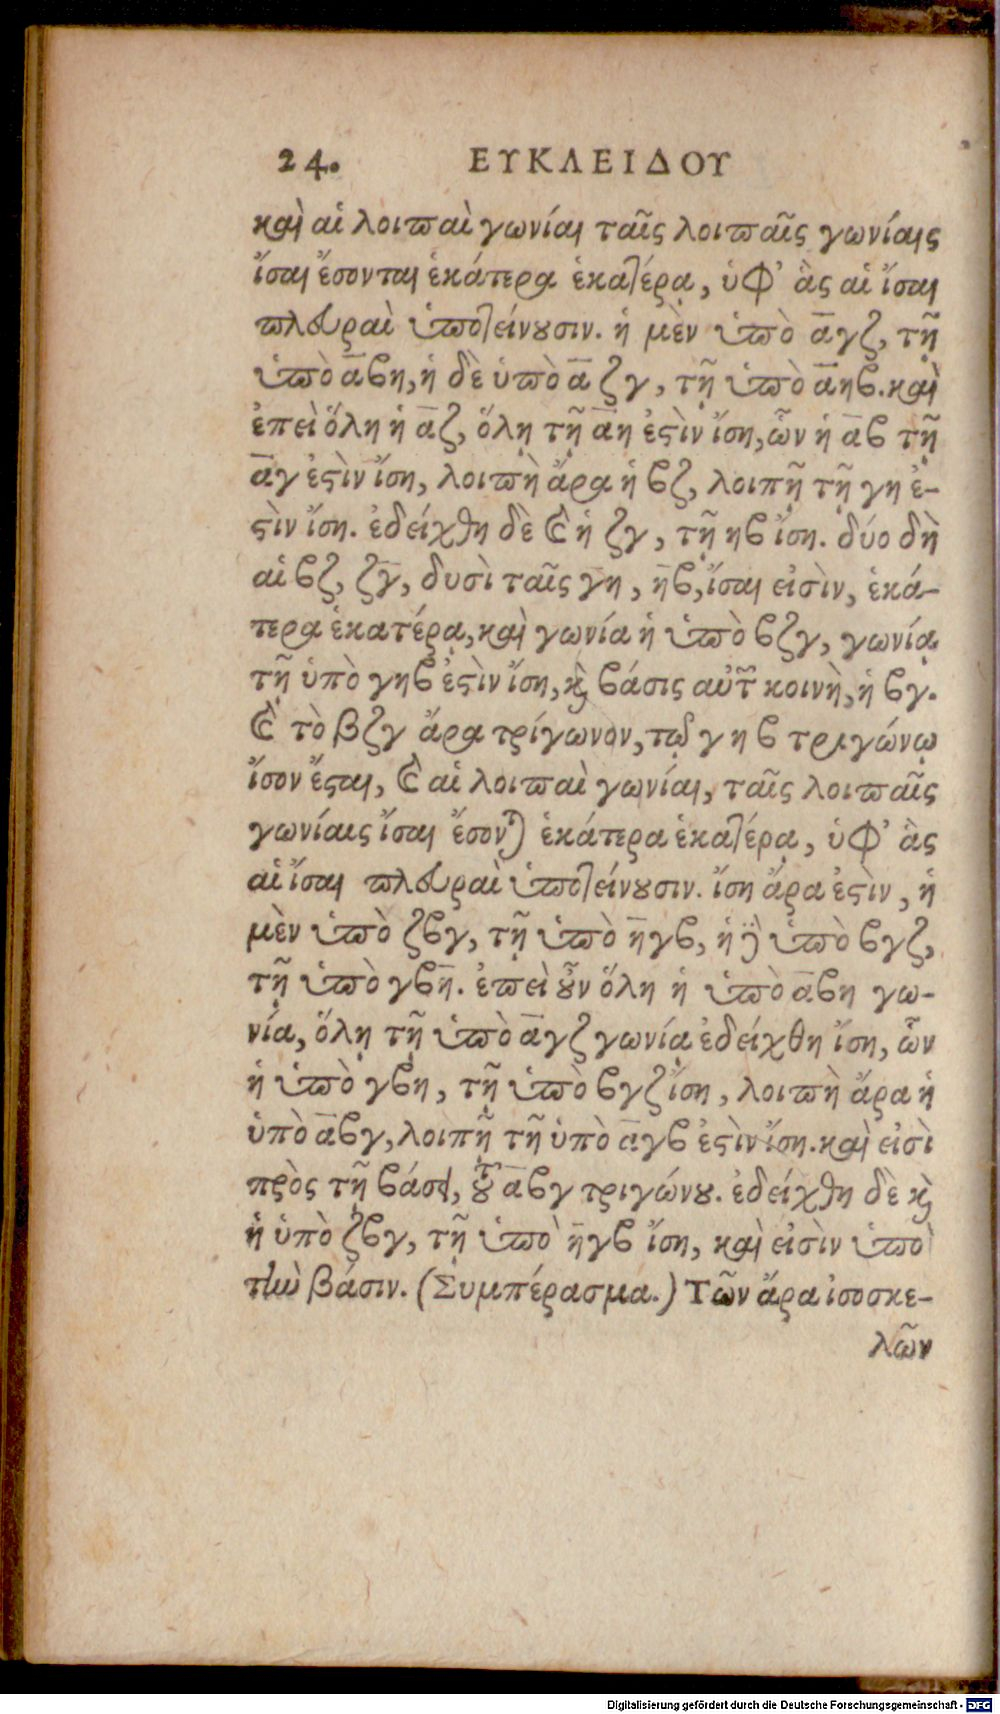 24. ΕΥΚΛΕΙΔΟΥ
καὶ αἱ λοιπαὶ γωνίαι ταῖς λοιπαῖς γωνίαις
ἴσαι ἔσονται ἑκάτερα ἑκατέρᾳ, ὑφ' ἃς αἱ ἴσαι
πλευραὶ ὑποτείνουσιν. ἡ μὲν ὑπὸ α̅γζ, τῇ
ὑπὸ α̅βη, ἡ δὲ ὑπὸ α̅ζγ, τῇ ὑπὸ α̅ηβ. καὶ
ἐπεὶ ὅλη ἡ α̅ζ, ὅλῃ τῇ α̅η ἐϛὶν ἴση, ὧν ἡ α̅β τῇ
α̅γ ἐϛὶν ἴση, λοιπὴ ἄρα ἡ βζ, λοιπῇ τῇ γη ἐ-
ϛὶν ἴση. ἐδείχθη δὲ καὶ ἡ ζγ, τῇ ηβ ἴση. δύο δὴ
αἱ βζ, ζγ̅, δυσὶ ταῖς γη, η̅β, ἴσαι εἰσὶν, ἑκά-
τερα ἑκατέρᾳ, καὶ γωνία ἡ ὑπὸ βζγ, γωνίᾳ
τῇ ὑπὸ γηβ ἐϛὶν ἴση, καὶ βάσις αὐτῶν κοινὴ, ἡ βγ.
καὶ τὸ βζγ ἄρα τρίγωνον, τῷ γηβ τριγώνῳ
ἴσον ἔϛαι, καὶ αἱ λοιπαὶ γωνίαι, ταῖς λοιπαῖς
γωνίαις ἴσαι ἔσονται ἑκάτερα ἑκατέρᾳ, ὑφ' ἃς
αἱ ἴσαι πλευραὶ ὑποτείνουσιν. ἴση ἄρα ἐϛὶν, ἡ
μὲν ὑπὸ ζβγ, τῇ ὑπὸ η̅γβ, ἡ δὲ ὑπὸ βγζ,
τῇ ὑπὸ γβη̅. ἐπεὶ οὖν ὅλη ἡ ὑπὸ α̅βη γω-
νία, ὅλῃ τῇ ὑπὸ α̅γζ γωνίᾳ ἐδείχθη ἴση, ὧν
ἡ ὑπὸ γβη, τῇ ὑπὸ βγζ ἴση, λοιπὴ ἄρα ἡ
ὑπὸ α̅βγ, λοιπῇ τῇ ὑπὸ α̅γβ ἐϛὶν ἴση. καὶ εἰσὶ
πρὸς τῇ βάσει, τοῦ α̅βγ τριγώνου. ἐδείχθη δὲ καὶ
ἡ ὑπὸ ζβγ, τῇ ὑπὸ η̅γβ ἴση, καὶ εἰσὶν ὑπὸ
τὴν βάσιν. (Συμπέρασμα.) Τῶν ἄρα ἰσοσκε-
λῶν
Digitalisierung gefördert durch die Deutsche Forschungsgemeinschaft - DFG